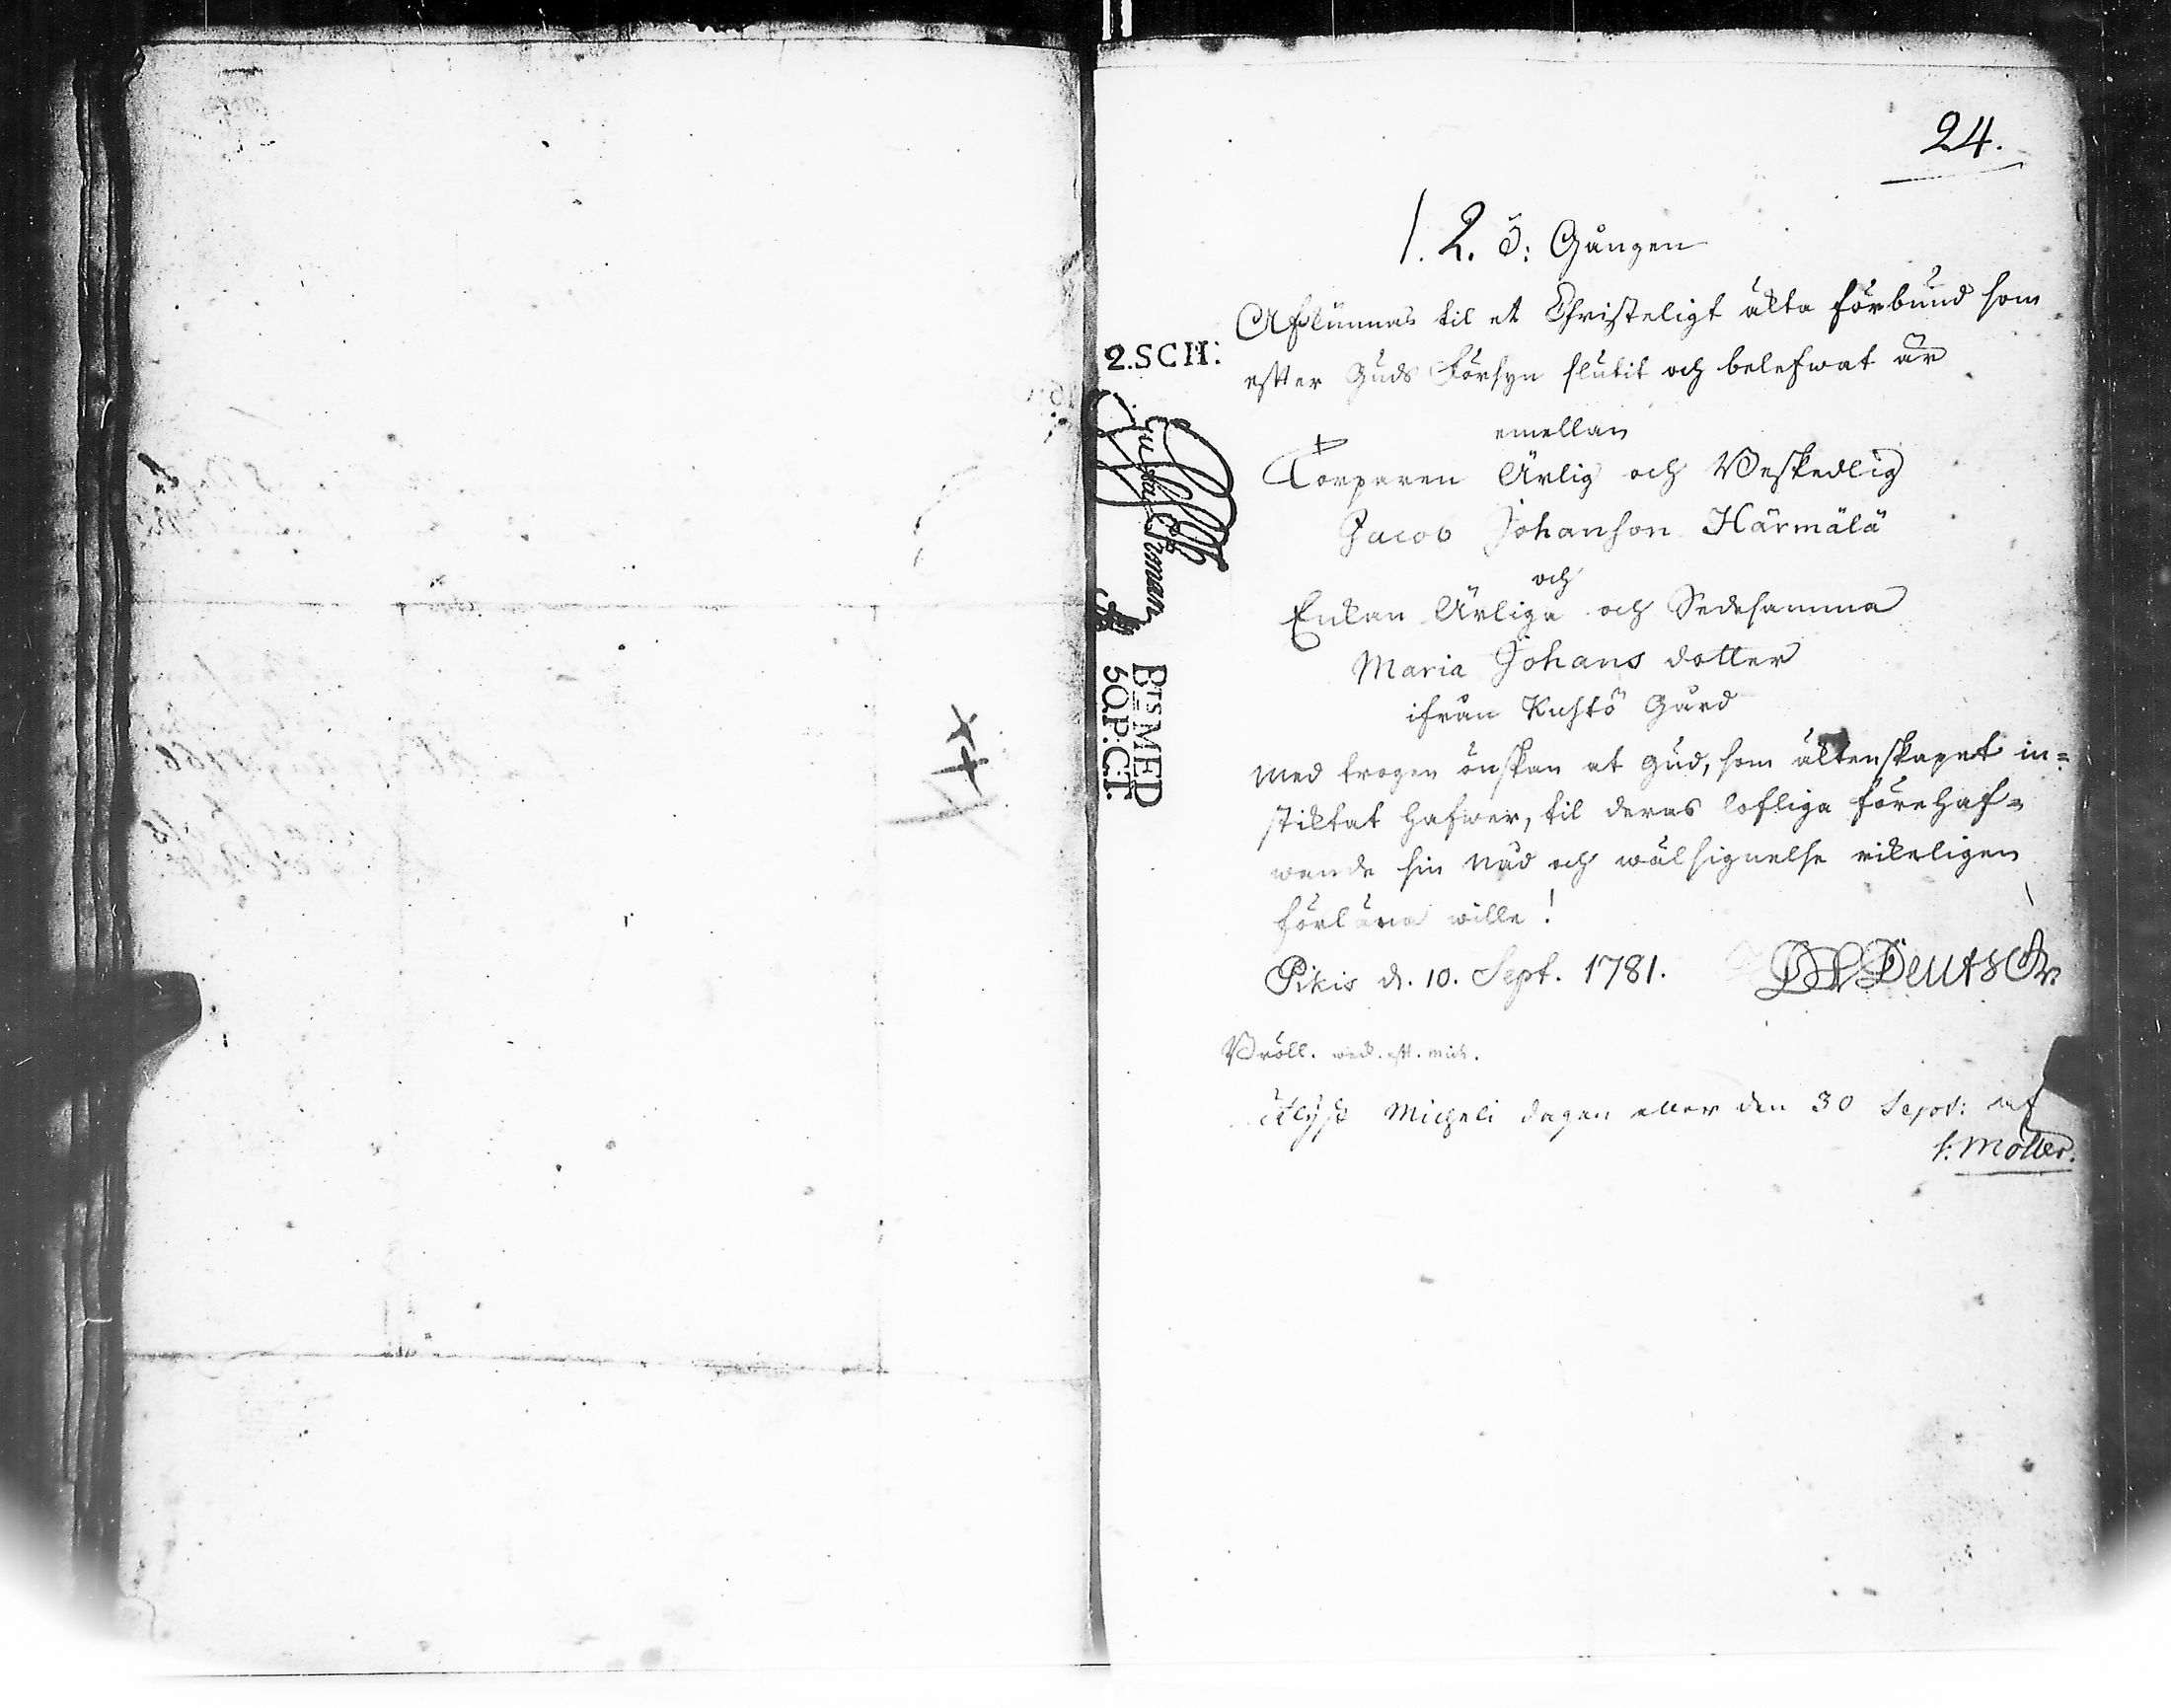 24.
1. 2. 3: Gången
Aflÿnnas til et Christeligt äkta förbund som
2.SCH:
efter Guds Försyn slutit och belefwat är
emellan
Torparen Ärlig och Beskedlig
Jacob Johanson Härmälä
och
Enkan Ärliga och Sedesamma
Maria Johans dotter
ifrån Kustö Gård
med trogen önskan at Gud, som äktenskapet in=
stiktat hafwer, til deras lofliga förehaf=
wande sin nåd och wälsignelse rikeligen
förläna wille!
Pikis d. 10. Sept. 1781. Deutsch
Bröll. weck. eft. mich.
utlyst Micheli dagen eller den 30 Sept: af
Moller.
BTS MED
5 Q.P:C:T: